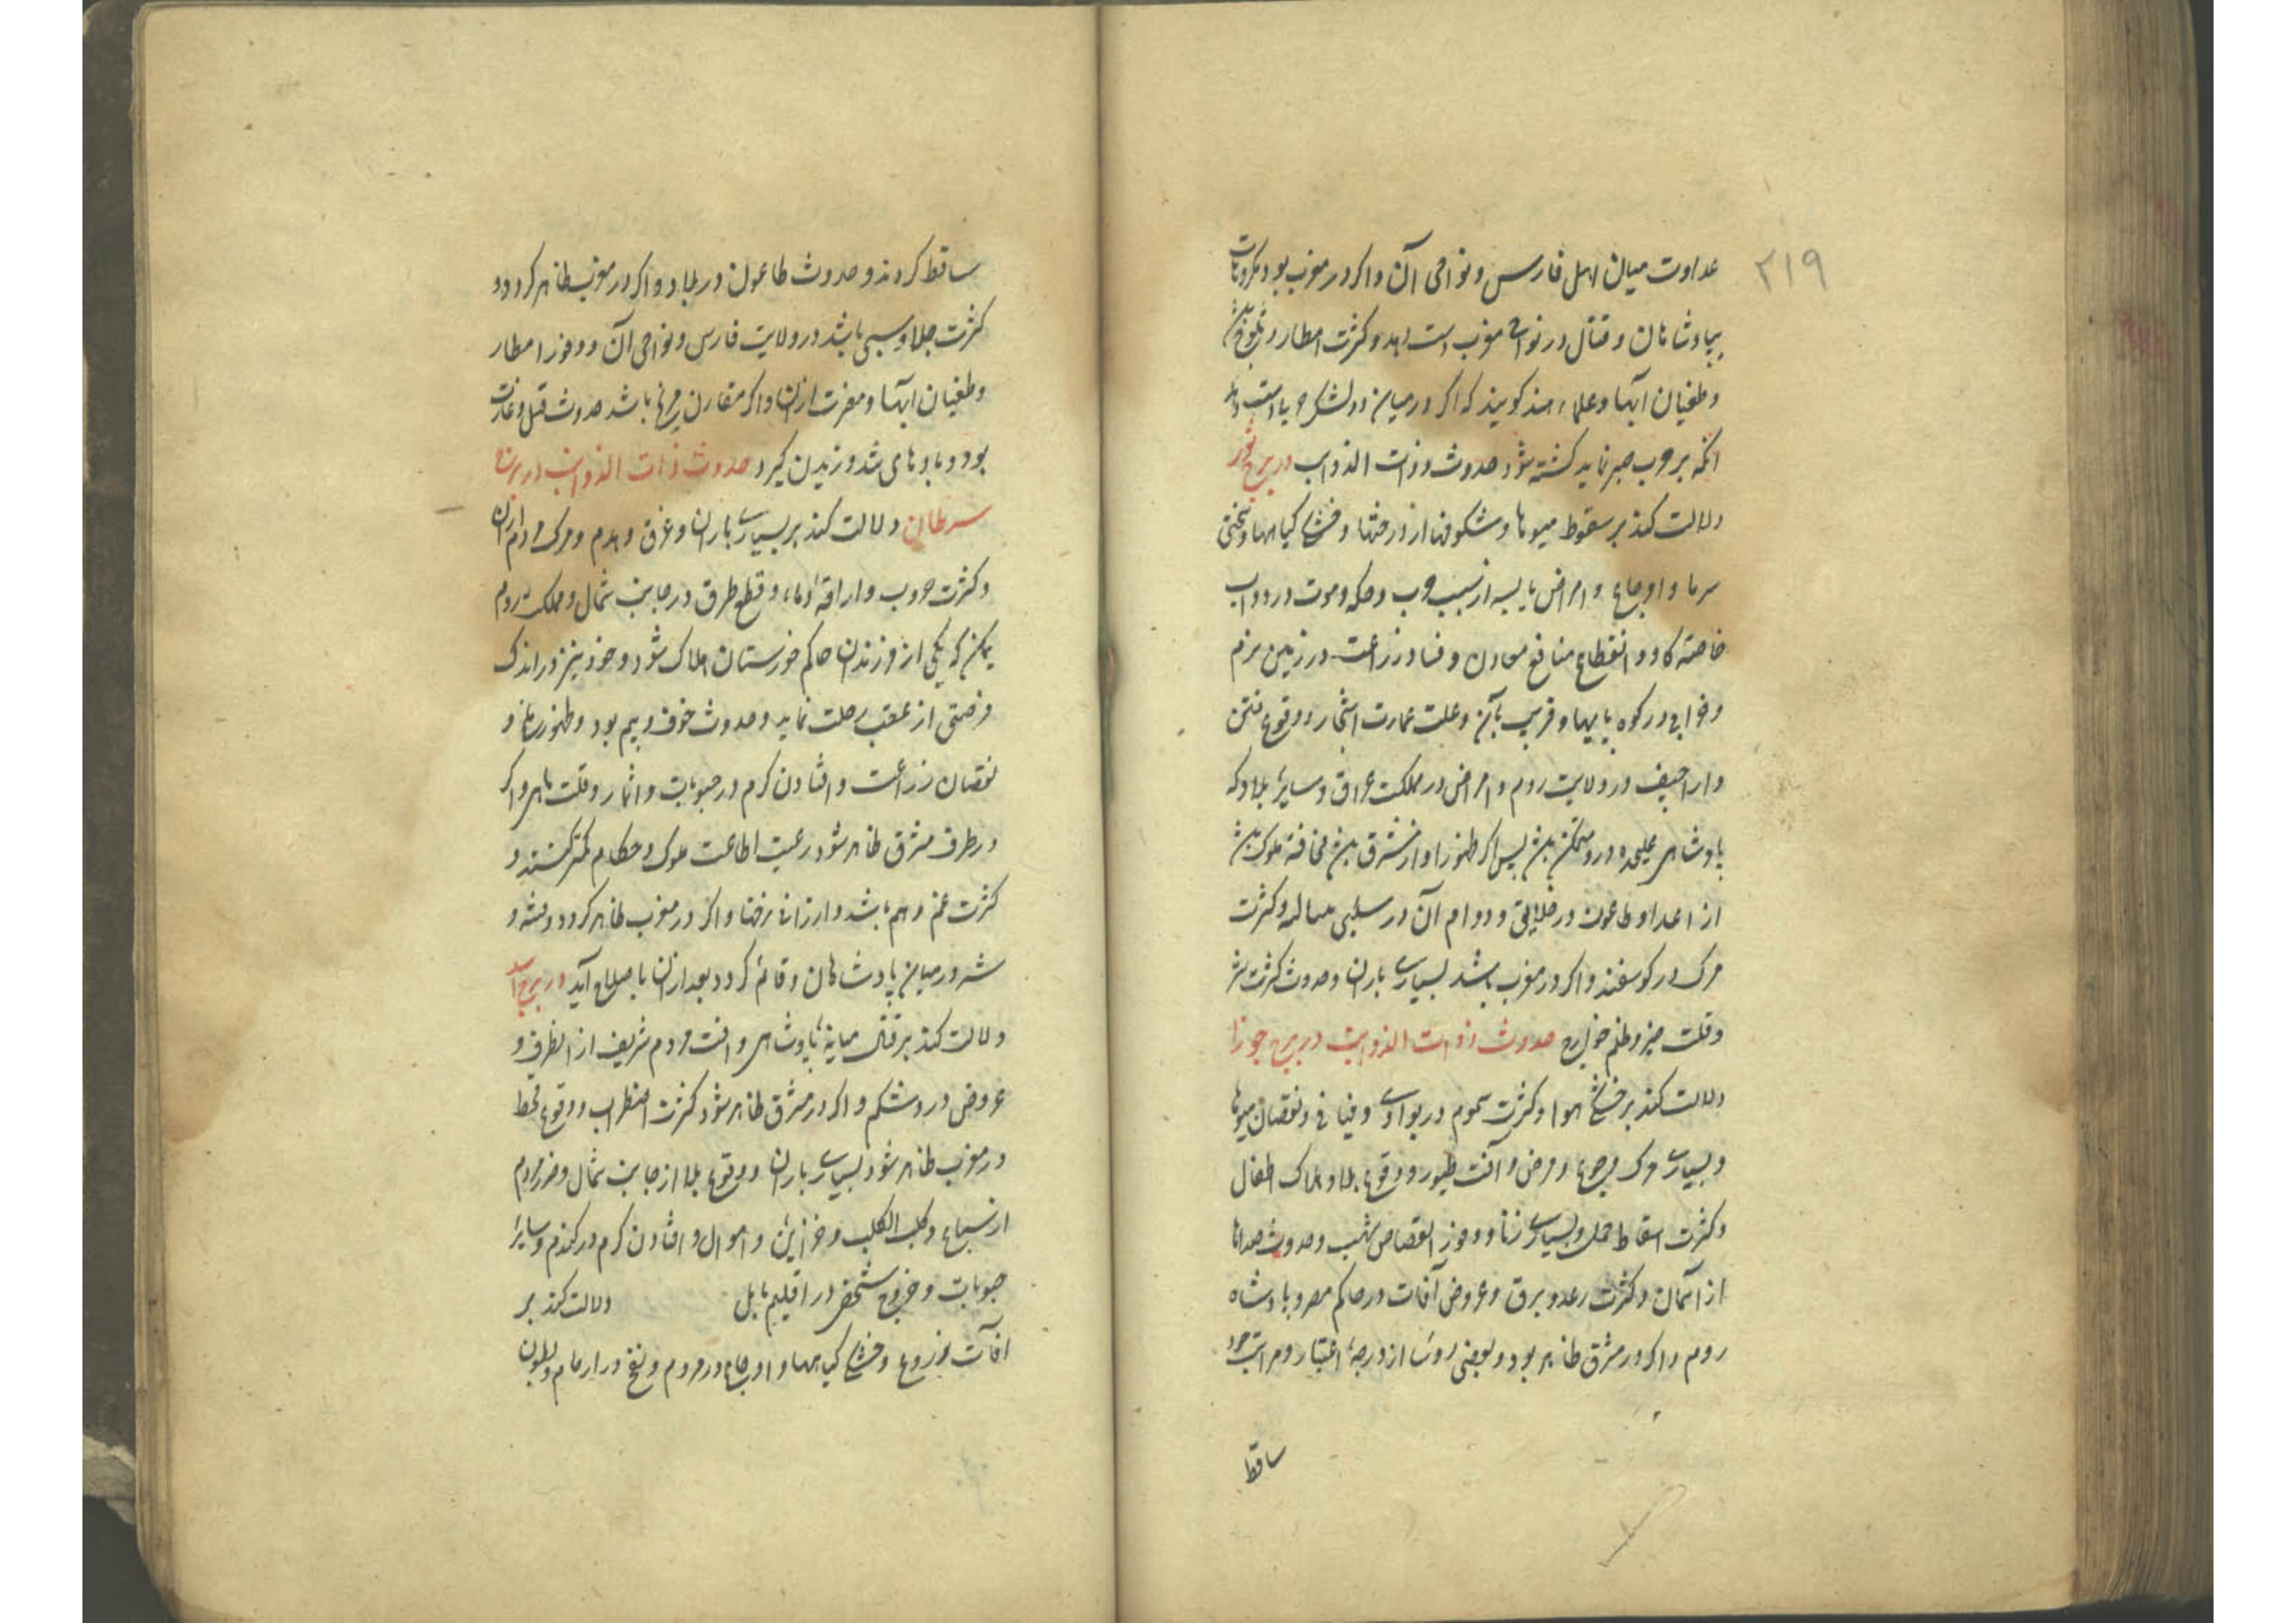 ۲۱۹
عداوت میان اهل فارس و نواحی آن و اکر در مغرب بود مکروهات
بپادشاهان و قتال در نواحی مغرب دست دهد و کثرت امطار و ثلوج باشد
و طغیان آبها و علماء هند کویند که اکر در میان دو لشکر حرب دست دهد
انکه بر حرب صبر نماید کشته شود حدوث ذوات الذوایب در برج ثور
دلالت کند بر سقوط میوها و شکوفها از درختها و خشکی کیاهها و سختی
سرما و اوجاع و امراض یابسه از سبب جرب و حکه و موت در دواب
خاصه کاو و انقطاع منافع معادن و فساد زراعت در زمین نرم
و خرابی در کوه پایها و قریب بآن و علت عمارت اشجار و وقوع فتن
و اراجیف در ولایت روم و امراض در مملکت عراق و سایر بلاد که
پادشاهی علیحده درو متمکن باشد پس اکر ظهور او از مشرق باشد مخافة ملوک باشد
از اعدا و طاعون در خلایق و دوام آن در سلبی مساله و کثرت
مرک در کوسفند و اکر در مغرب باشد بسیاری باران و حدوث کثرت شر
و قلت خیر و ظلم خوارج حدوث ذوات الذوایب در برج جوزا
دلالت کند بر خشکی هوا و کثرت سموم در بوادی و فیافی و نقصان میوها
و بسیاری مرک و جوع و مرض و آفت طیور و وقوع بلا و هلاک اطفال
و کثرت اسقاط حمل و بسیاری زنا و وفور انقضاض شهب و حدوث صداها
از آسمان و کثرت رعد و برق و عروض آفات در حاکم مصر و پادشاه
روم و اکر در مشرق ظاهر بود و بعضی رؤسا از درجهٔ اعتبار و مراتب خود
ساقط
ساقط کردند و حدوث طاعون در بلاد و اکر در مغرب ظاهر کردد
کثرت جلا و سبی باشد در ولایت فارس و نواحی آن و وفور امطار
و طغیان آبها و مضرت ازان و اکر مقارن مریخ باشد حدوث قتل و غارت
بود و بادهای تند وزیدن کیرد حدوث ذات الذوایب در برج
سرطان دلالت کند بر بسیاری باران و غرق و هدم و مرک مردم ازان
و کثرت حروب و اراقهٔ دماء و قطع طرق در جانب شمال و مملکت روم
یمکن که یکی از فرزندان حاکم خورستان هلاک شود و خود نیز در اندک
فرصتی از عقب رحلت نماید و حدوث خوف و بیم بود و ظهور ملخ و
نقصان زراعت و افتادن کرم در حبوبات و اثمار و قلت ماهی و اکر
در طرف مشرق ظاهر شود رعیت اطاعت ملوک و حکام کمتر کنند و
کثرت غم و هم باشد و ارزانی نرخها و اکر در مغرب ظاهر کردد فتنه و
شر در میان پادشاهان قائم کردد بعد ازان باصلاح آید در برج اسد
دلالت کند بر قتال میانه پادشاهی و افت مردم شریف از اطراف و
عروض درد شکم و اکر در مشرق ظاهر شود کثرت اضطراب و وقوع قحط
در مغرب ظاهر شود بسیاری باران و وقوع بلا از جانب شمال و ضرر مردم
از سباع و کلب الکلب و خزاین و اموال و افتادن کرم در کندم و سایر
حبوبات و خروج شخصی در اقلیم بابل دلالت کند بر
افات مزروع و خشکی کیاهها و اوجاع در مردم و نفخ در ارحام و بطون